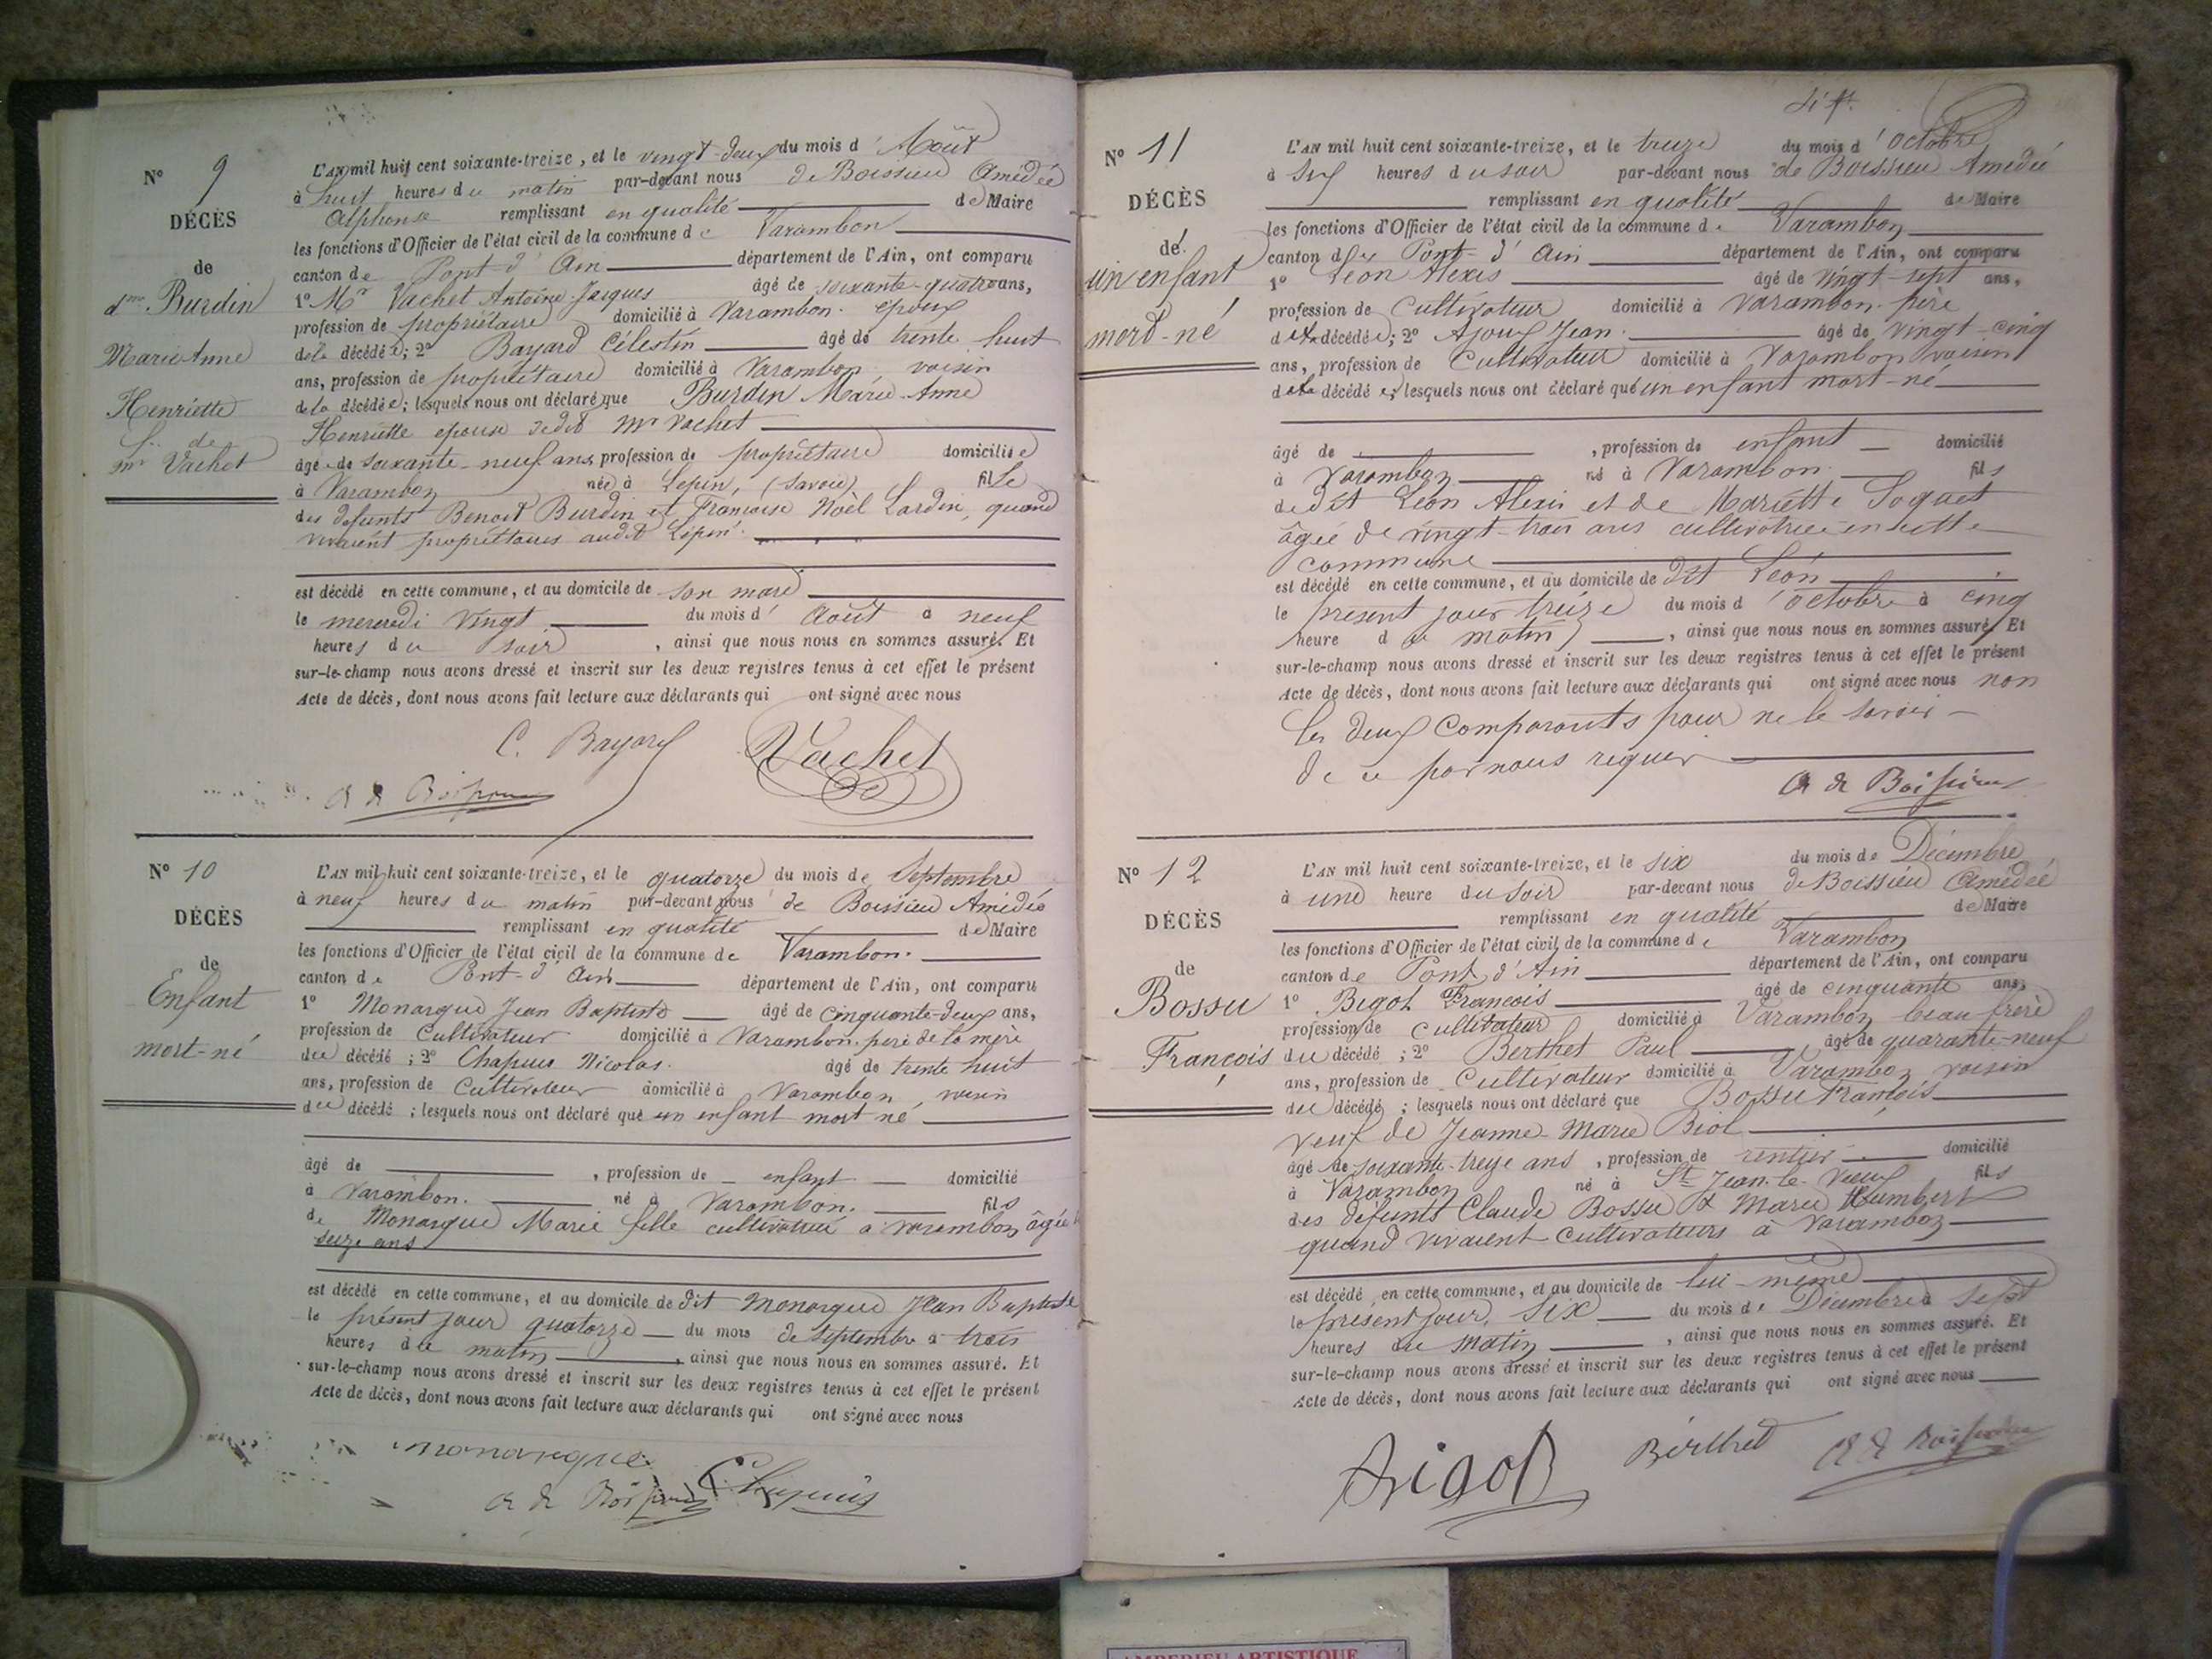 N° 9
DÉCÈS
de
dme Burdin
Marie Anne
Henriette
f. de
mr Vachet
L'AN mil huit cent soixante-treize, et le vingt-deux du mois d'Août
à huit heures du matin par-devant nous de Boissieu Amédée
Alphonse remplissant en qualité de Maire
les fonctions d'Officier de l'état civil de la commune de Varambon
canton de Pont-d'Ain département de l'Ain, ont comparu
1° Mr Vachet Antoine Jacques âgé de soixante-quatre ans,
profession de propriétaire domicilié à Varambon. époux
de la décédée; 2° Bayard Célestin âgé de trente huit
ans, profession de propriétaire domicilié à Varambon, voisin
de la décédée; lesquels nous ont déclaré que Burdin Marie Anne
Henriette epouse dudit Mr Vachet
âgée de soixante-neuf ans, profession de propriétaire domiciliée
à Varambon née à Lépin, (Savoie) fille
des defunts Benoit Burdin et Françoise Noèl Lardin, quand
vivaient propriétaires audit Lépin.
est décédé en cette commune, et au domicile de son mari
le mercredi vingt du mois d'Août à neuf
heures du soir, ainsi que nous nous en sommes assuré. Et
sur-le-champ nous avons dressé et inscrit sur les deux registres tenus à cet effet le présent
Acte de décès, dont nous avons fait lecture aux déclarants qui ont signé avec nous
C. Bayard Vachet
A de Boissieu
N° 10
DÉCÈS
de
Enfant
mort-né
L'AN mil huit cent soixante-treize, et le quatorze du mois de Septembre
à neuf heures du matin par-devant nous de Boissieu Amédée
remplissant en qualité de Maire
les fonctions d'Officier de l'état civil de la commune de Varambon.
canton de Pont-d'Ain département de l'Ain, ont comparu
1° Monarque Jean Baptiste âgé de cinquante-deux ans,
profession de Cultivateur domicilié à Varambon. père de la mère
du décédé; 2° Chapuis Nicolas. âgé de trente huit
ans, profession de Cultivateur domicilié à Varambon, voisin
du décédé; lesquels nous ont déclaré que un enfant mort né
âgé de , profession de enfant domicilié
à Varambon. né à Varambon. fils
de Monarque Marie fille cultivatrice à Varambon âgée
seize ans
est décédé en cette commune, et au domicile de dit Monarque Jean Baptiste
le présent jour quatorze du mois de Septembre à trois
heures du matin, ainsi que nous nous en sommes assuré. Et
sur-le-champ nous avons dressé et inscrit sur les deux registres tenus à cet effet le présent
Acte de décès, dont nous avons fait lecture aux déclarants qui ont signé avec nous
monarque
A de Boissieu Chapuis
N° 11
DÉCÈS
de
un enfant
mort-né
L'AN mil huit cent soixante-treize, et le treize du mois d'Octobre
à six heures du soir par-devant nous de Boissieu Amédée
remplissant en qualité de Maire
les fonctions d'Officier de l'état civil de la commune de Varambon
canton de Pont-d'Ain département de l'Ain, ont comparu
1° Léon Alexis âgé de vingt-sept ans,
profession de Cultivateur domicilié à Varambon. père
décédé; 2° Ajoux Jean. âgé de vingt-cinq
ans, profession de Cultivateur domicilié à Varambon voisin
décédé; lesquels nous ont déclaré que un enfant mort-né
âgé de , profession de enfant domicilié
à Varambon né à Varambon. fils
de dit Léon Alexis et de Mariette Soquet
âgée de vingt-trois ans cultivatrice en cette
commune
est décédé en cette commune, et au domicile de dit Léon
le présent jour treize du mois d'Octobre à cinq
heure du matin, ainsi que nous nous en sommes assuré. Et
sur-le-champ nous avons dressé et inscrit sur les deux registres tenus à cet effet le présent
Acte de décès, dont nous avons fait lecture aux déclarants qui ont signé avec nous non
les deux comparants pour ne le savoir
de ce par nous requer
A de Boissieu
N° 12
DÉCÈS
de
Bossu
François
L'AN mil huit cent soixante-treize, et le six du mois de Décembre
à une heure du soir par-devant nous de Boissieu Amédée
remplissant en qualité de Maire
les fonctions d'Officier de l'état civil de la commune de Varambon
canton de Pont d'Ain département de l'Ain, ont comparu
1° Bigot François âgé de cinquante ans,
profession de Cultivateur domicilié à Varambon beau frère
du décédé; 2° Berthet Paul âgé de quarante-neuf
ans, profession de Cultivateur domicilié à Varambon voisin
du décédé; lesquels nous ont déclaré que Bossu François
veuf de Jeanne-Marie Biol
âgé de soixante-treize ans, profession de rentier domicilié
à Varambon né à St Jean-le-Vieux fils
des défunts Claude Bossu & Marie Humbert
quand vivaient cultivateurs à Varambon
est décédé en cette commune, et au domicile de lui-même
le présent jour six du mois de Décembre à sept
heures du matin, ainsi que nous nous en sommes assuré. Et
sur-le-champ nous avons dressé et inscrit sur les deux registres tenus à cet effet le présent
Acte de décès, dont nous avons fait lecture aux déclarants qui ont signé avec nous
Bigot Berthet A de Boissieu